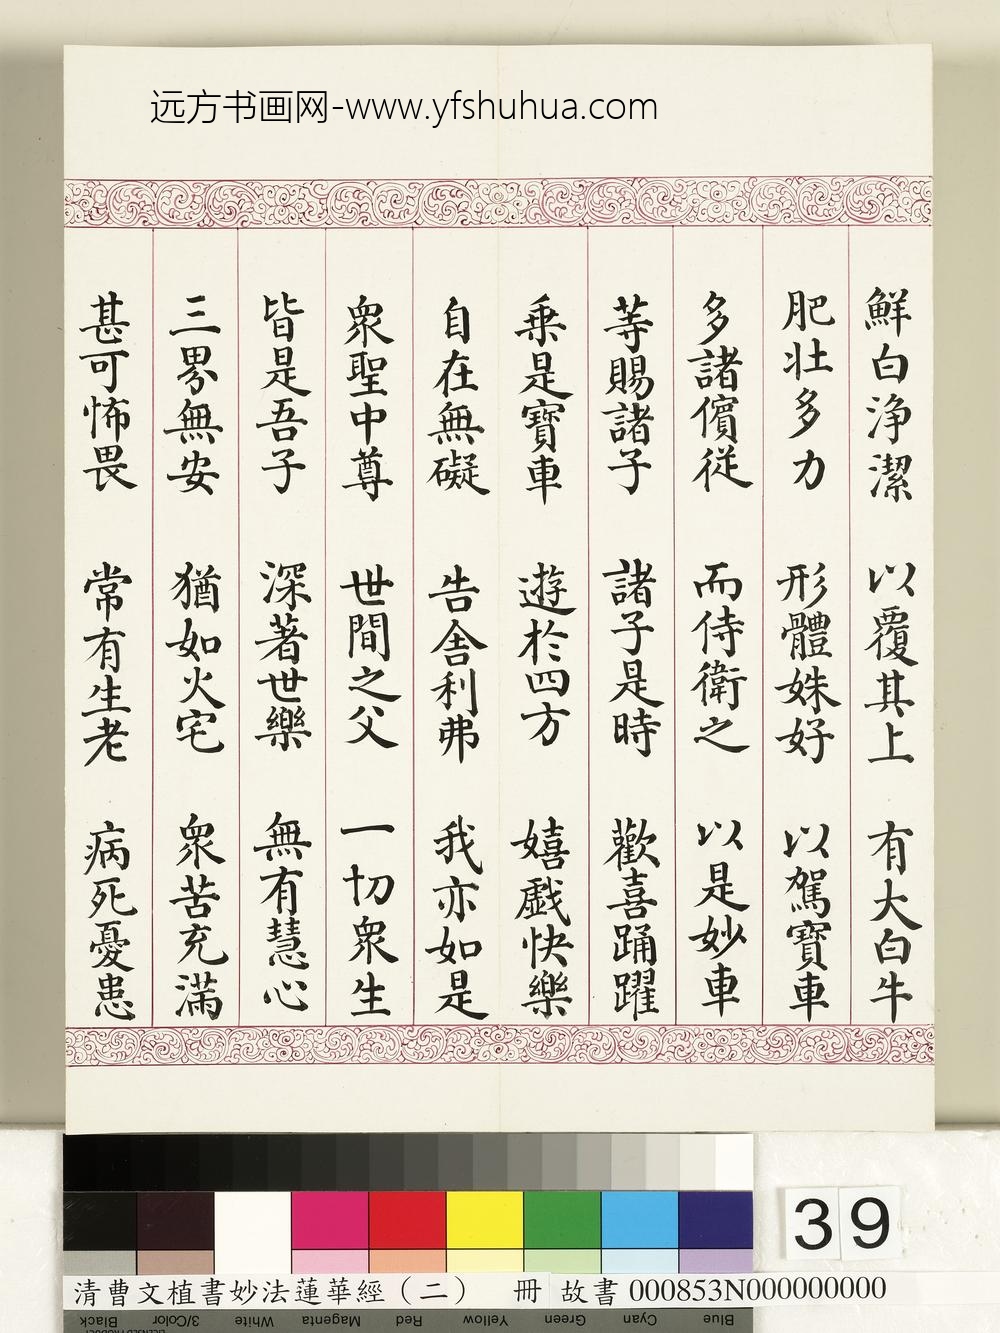 远方书画网-www.yfshuhua.com
鮮白淨潔 以覆其上 有大白牛
肥壯多力 形體姝好 以駕寶車
多諸儐從 而侍衛之 以是妙車
等賜諸子 諸子是時 歡喜踊躍
乗是寶車 遊於四方 嬉戲快樂
自在無礙 告舍利弗 我亦如是
眾聖中尊 世間之父 一切眾生
皆是吾子 深著世樂 無有慧心
三界無安 猶如火宅 眾苦充滿
甚可怖畏 常有生老 病死憂患
39
清曹文植書妙法蓮華經（二） 冊 故書 000853N000000000
Black 3/Color White Magenta Red Yellow Green Cyan Blue